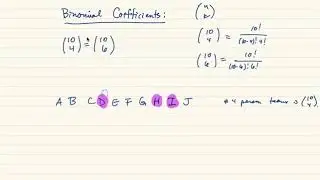 Binomial Coefficients:
(10 4) = (10 6)
(n k)
(10 4) = 10! / (10-4)! 4!
(10 6) = 10! / (10-6)! 6!
A B C D E F G H I J
# 4 person teams is (10 4)